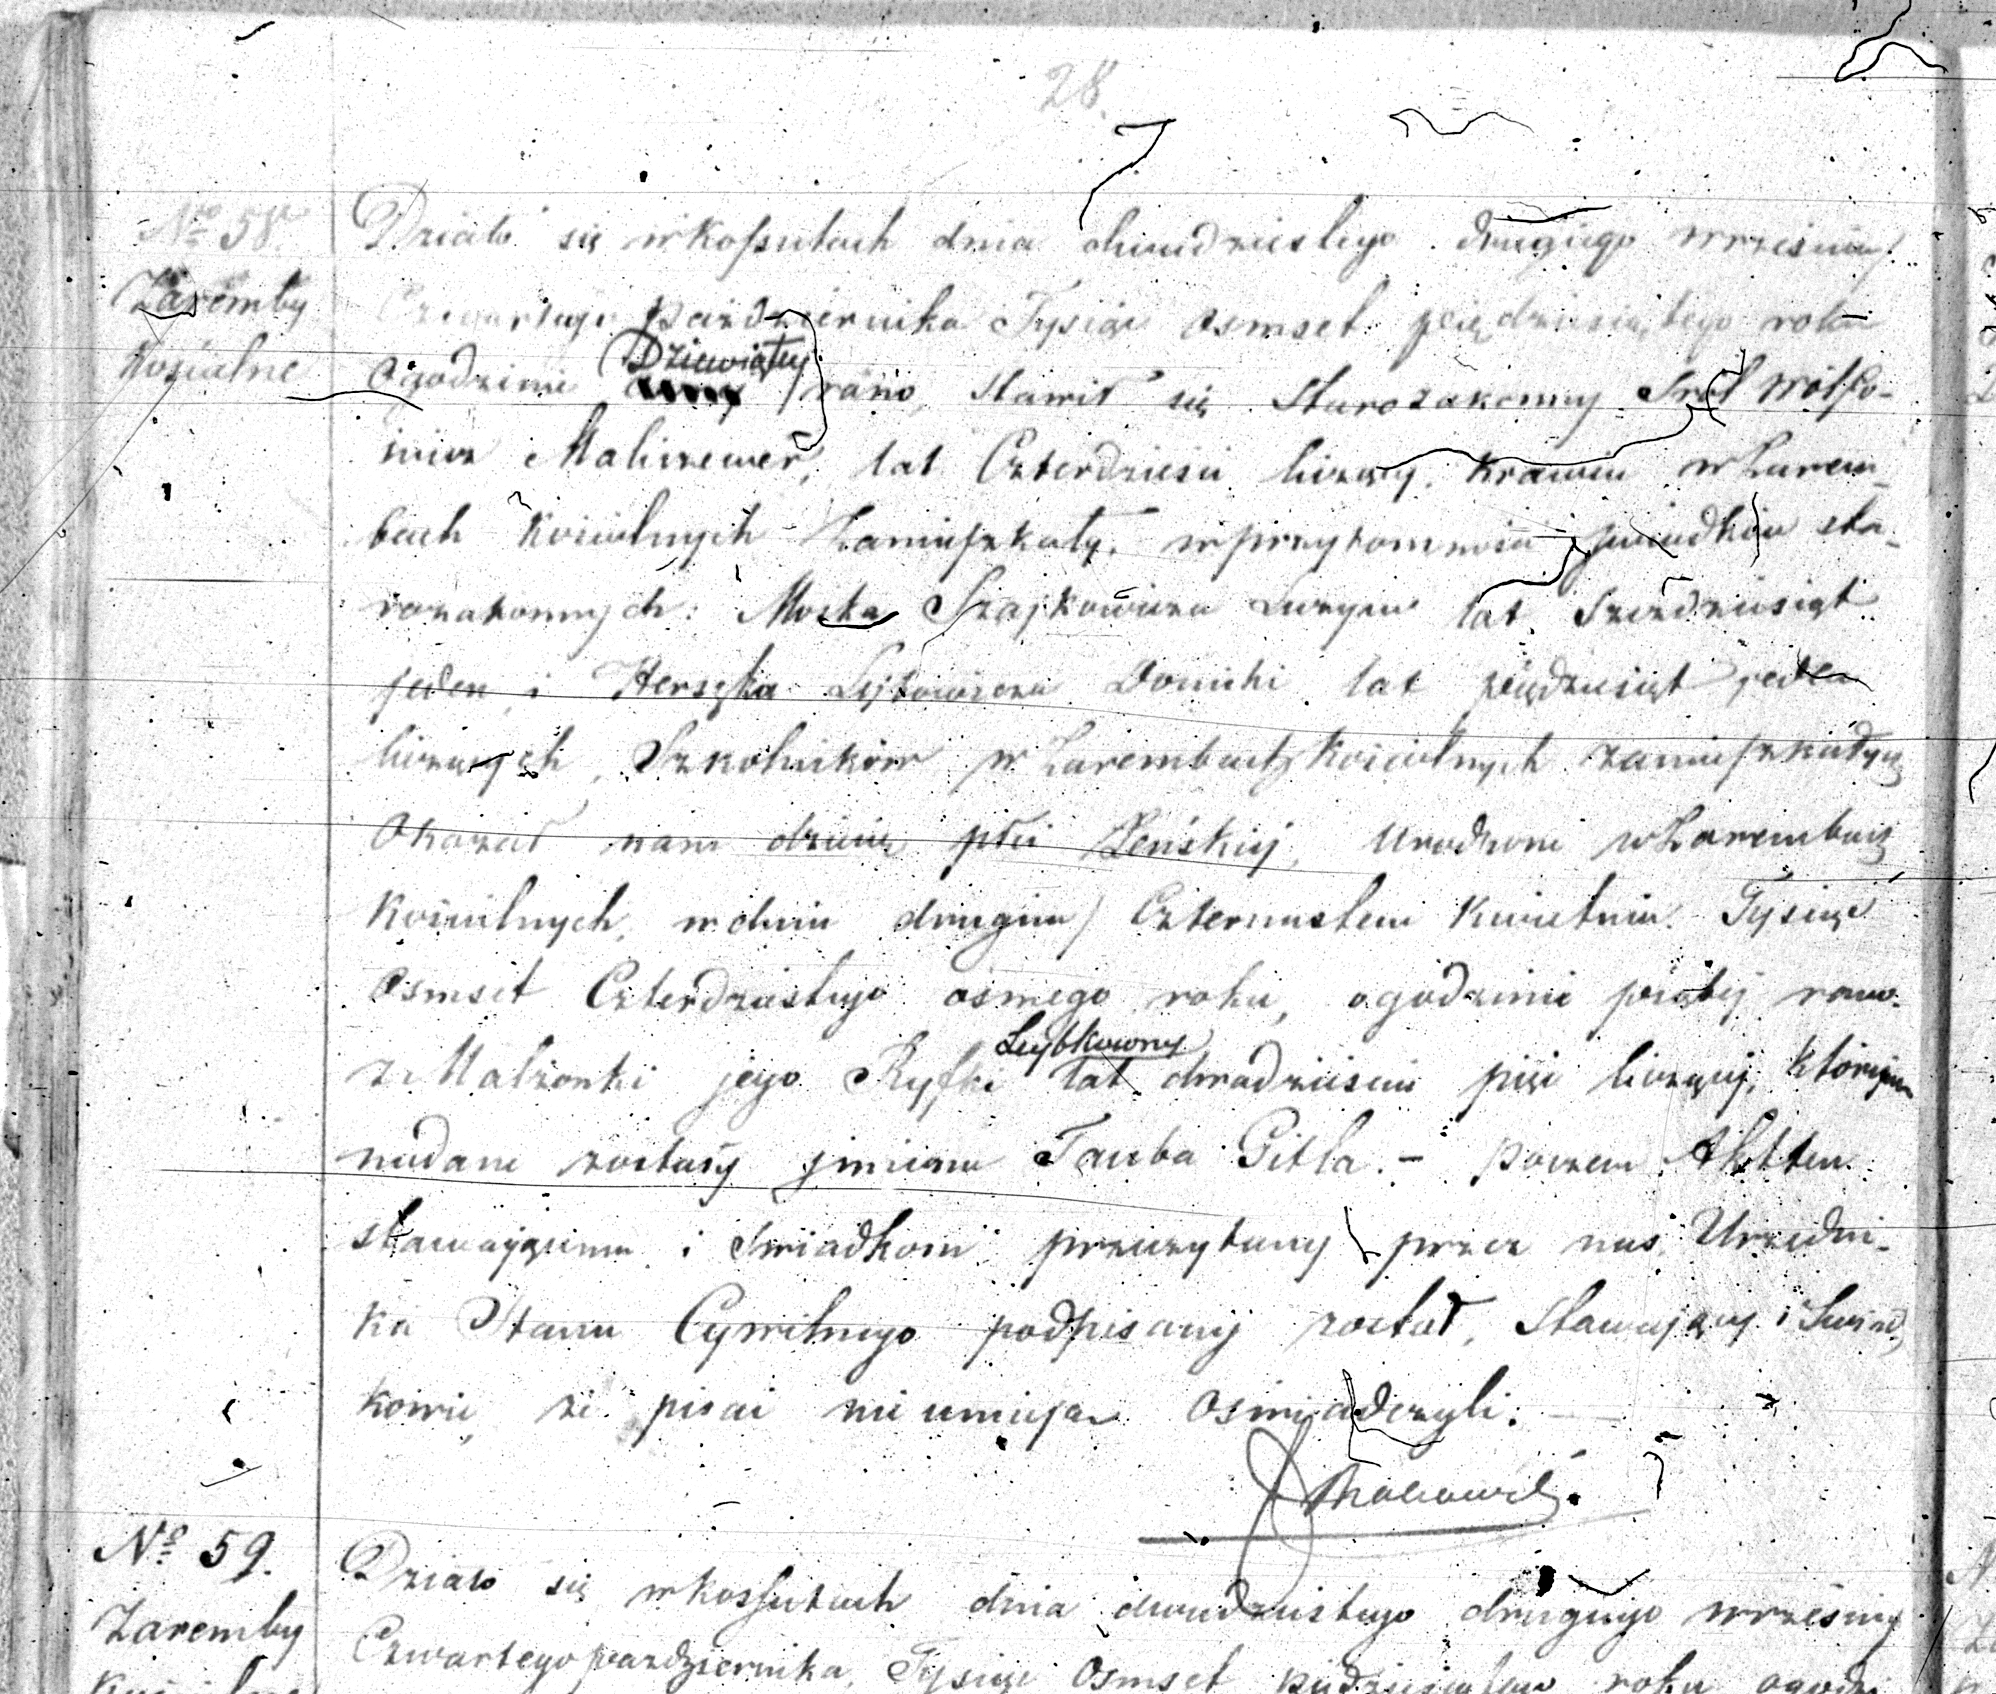 28.
No 58.
Zaremby
Kościelne
Działo się w Kossutach dnia dwudziestego drugiego Wrześnią/
Czwartego października Tysiąc osmset piędziesiątego roku
ogodzinie Dziewiątey rano, stawił się Starozakonny Srol Wolfo-
wicz Maliszewer, lat Czterdzieści liczący, Krawiec w Zarem-
bach Kościelnych Zamieszkały, w przytomności świadków sta-
rozakonnych: Moska Szajkowicza lat Sześdziesiąt
jeden, i Herszka Lejbowicza lat piędziesiąt jeden
liczących, Szkolników w Zarembach Kościelnych zamieszkałych
Okazał nam dziecię płci Żeńskiej, Urodzone w Zarembach
Kościelnych, w dniu drugim/ Czternastem Kwietnia Tysiąc
Osmset Czterdziestego osmego roku, ogodzinie piątej rano
z Małżonki jego Ryfki Leybkowny lat dwadzieścia pięć liczącej, któremu
nadane zostały jmiona Tauba Gitla. – poczem Akt ten
stawającemu i Swiadkom przeczytany przez nas Urzędni-
ka Stanu Cywilnego podpisany został, Stawający i Swiad-
kowie, że pisać nie umieją oswiadczyli.
No 59.
Zaremby
Działo się w Kossutach dnia dwudziestego drugiego września
Czwartego października, Tysiąc Osmset piędziesiątego roku ogodzi